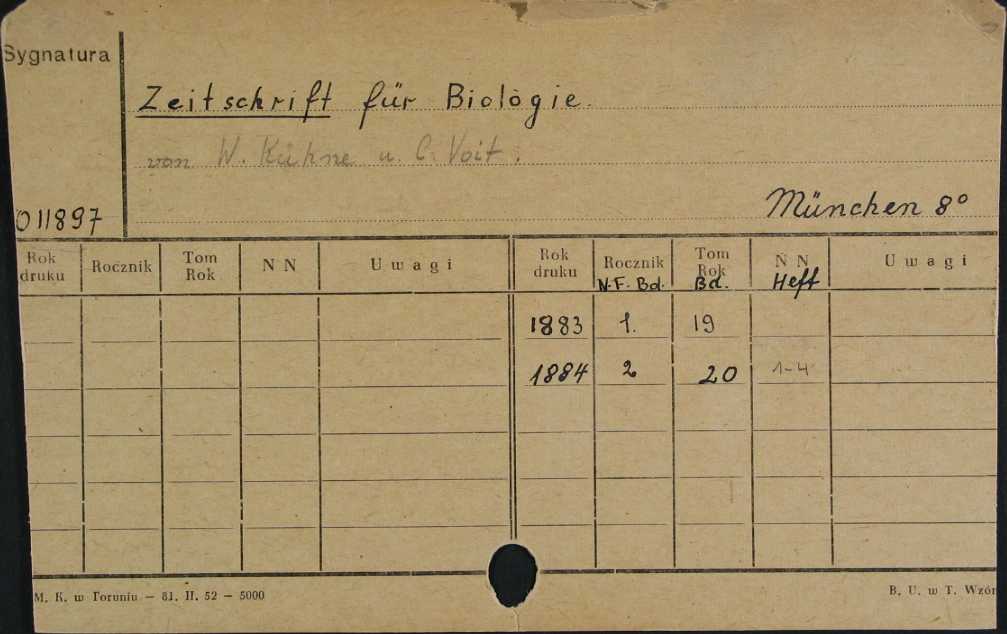 Sygnatura
Zeitschrift für Biologie.
von W. Kühne u. C. Voit.
München 8°
011897
Rok druku Rocznik Tom Rok N N Uwagi Rok druku Rocznik N.F. Bd. Tom Rok Bd. N N Heft Uwagi
1883 1. 19
1884 2 20 1-4
M. K. w Toruniu — 81. II. 52 — 5000
B. U. w T. Wzór